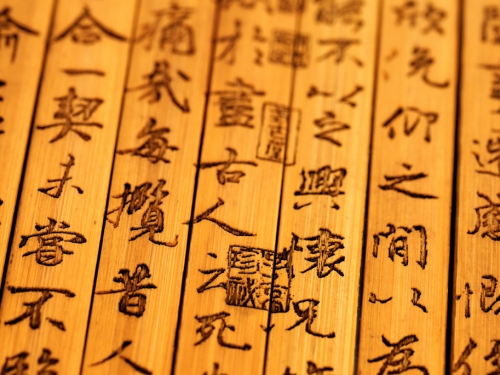 遷感慨
欣俛仰之間以為
能不以之興懷况
於盡古人云死
痛哉每攬昔人
合一契未嘗不臨
喻